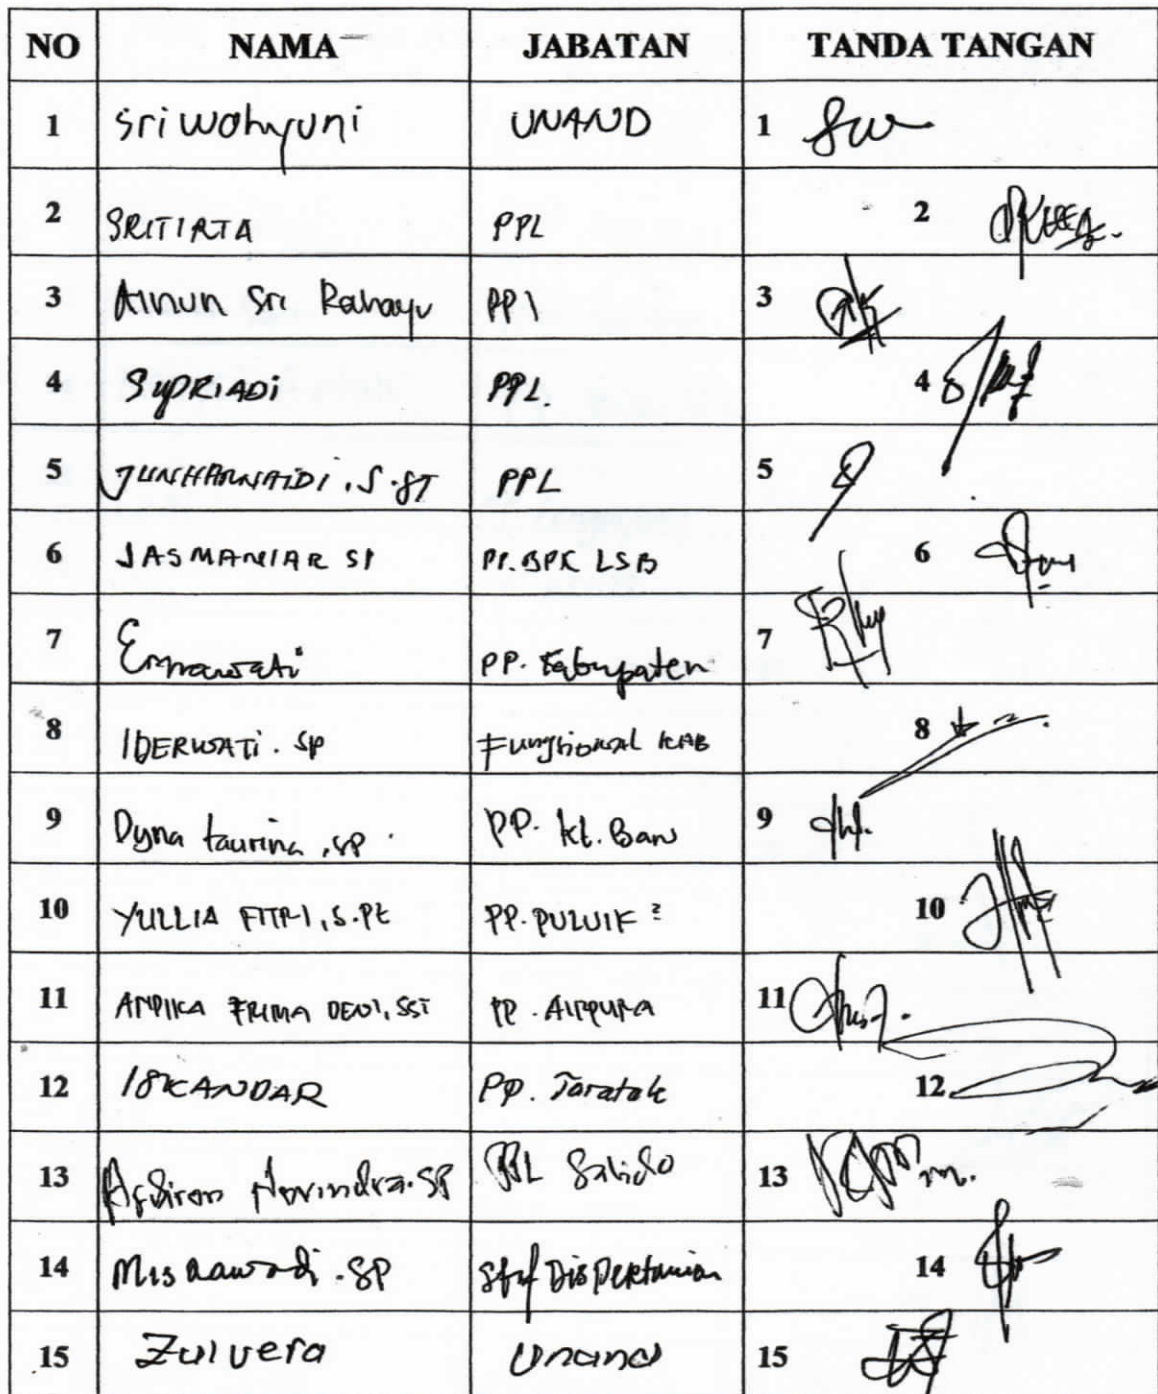 NO NAMA JABATAN TANDA TANGAN
1 Sri Wahyuni UNAND 1
2 SRITIRTA PPL 2
3 Ainun Sri Rahayu PPl 3
4 SUPRIADI PPL. 4
5 JUNHARNAIDI, S.ST PPL 5
6 JASMANIAR SP PP. BPK LSB 6
7 Ernawati PP. Kabupaten 7
8 IDERWATI. SP Fungsional KAB 8
9 Dyna taurina, SP PP. kt. Baru 9
10 YULLIA FITRI, S.Pt PP. PULUIK 2 10
11 PRIMA DEWI, SST PP. AIRPURA 11
12 ISKANDAR PP. Taratak 12
13 Novindra. SP PPL Salido 13
14 Misnawadi. SP Staf Dis Pertanian 14
15 Zulvera Unand 15